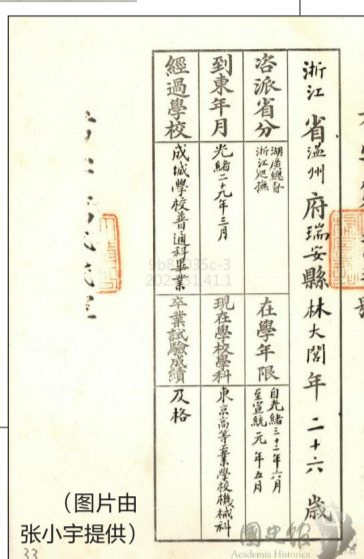 浙江省溫州府瑞安縣林大閭年二十六歲
咨派省分
湖廣總督
浙江巡撫
在學年限
自光緒三十二年六月
至宣統元年五月
到東年月
光緒二十九年三月
現在學校學科
東京高等工業學校機械科
經過學校
成城學校普通科畢業
卒業試驗成績
及格
（图片由
张小宇提供）
33
國史館
Academia Historica